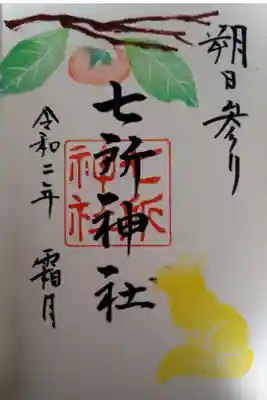 朔日参り
七所神社
七所神社
令和二年 霜月